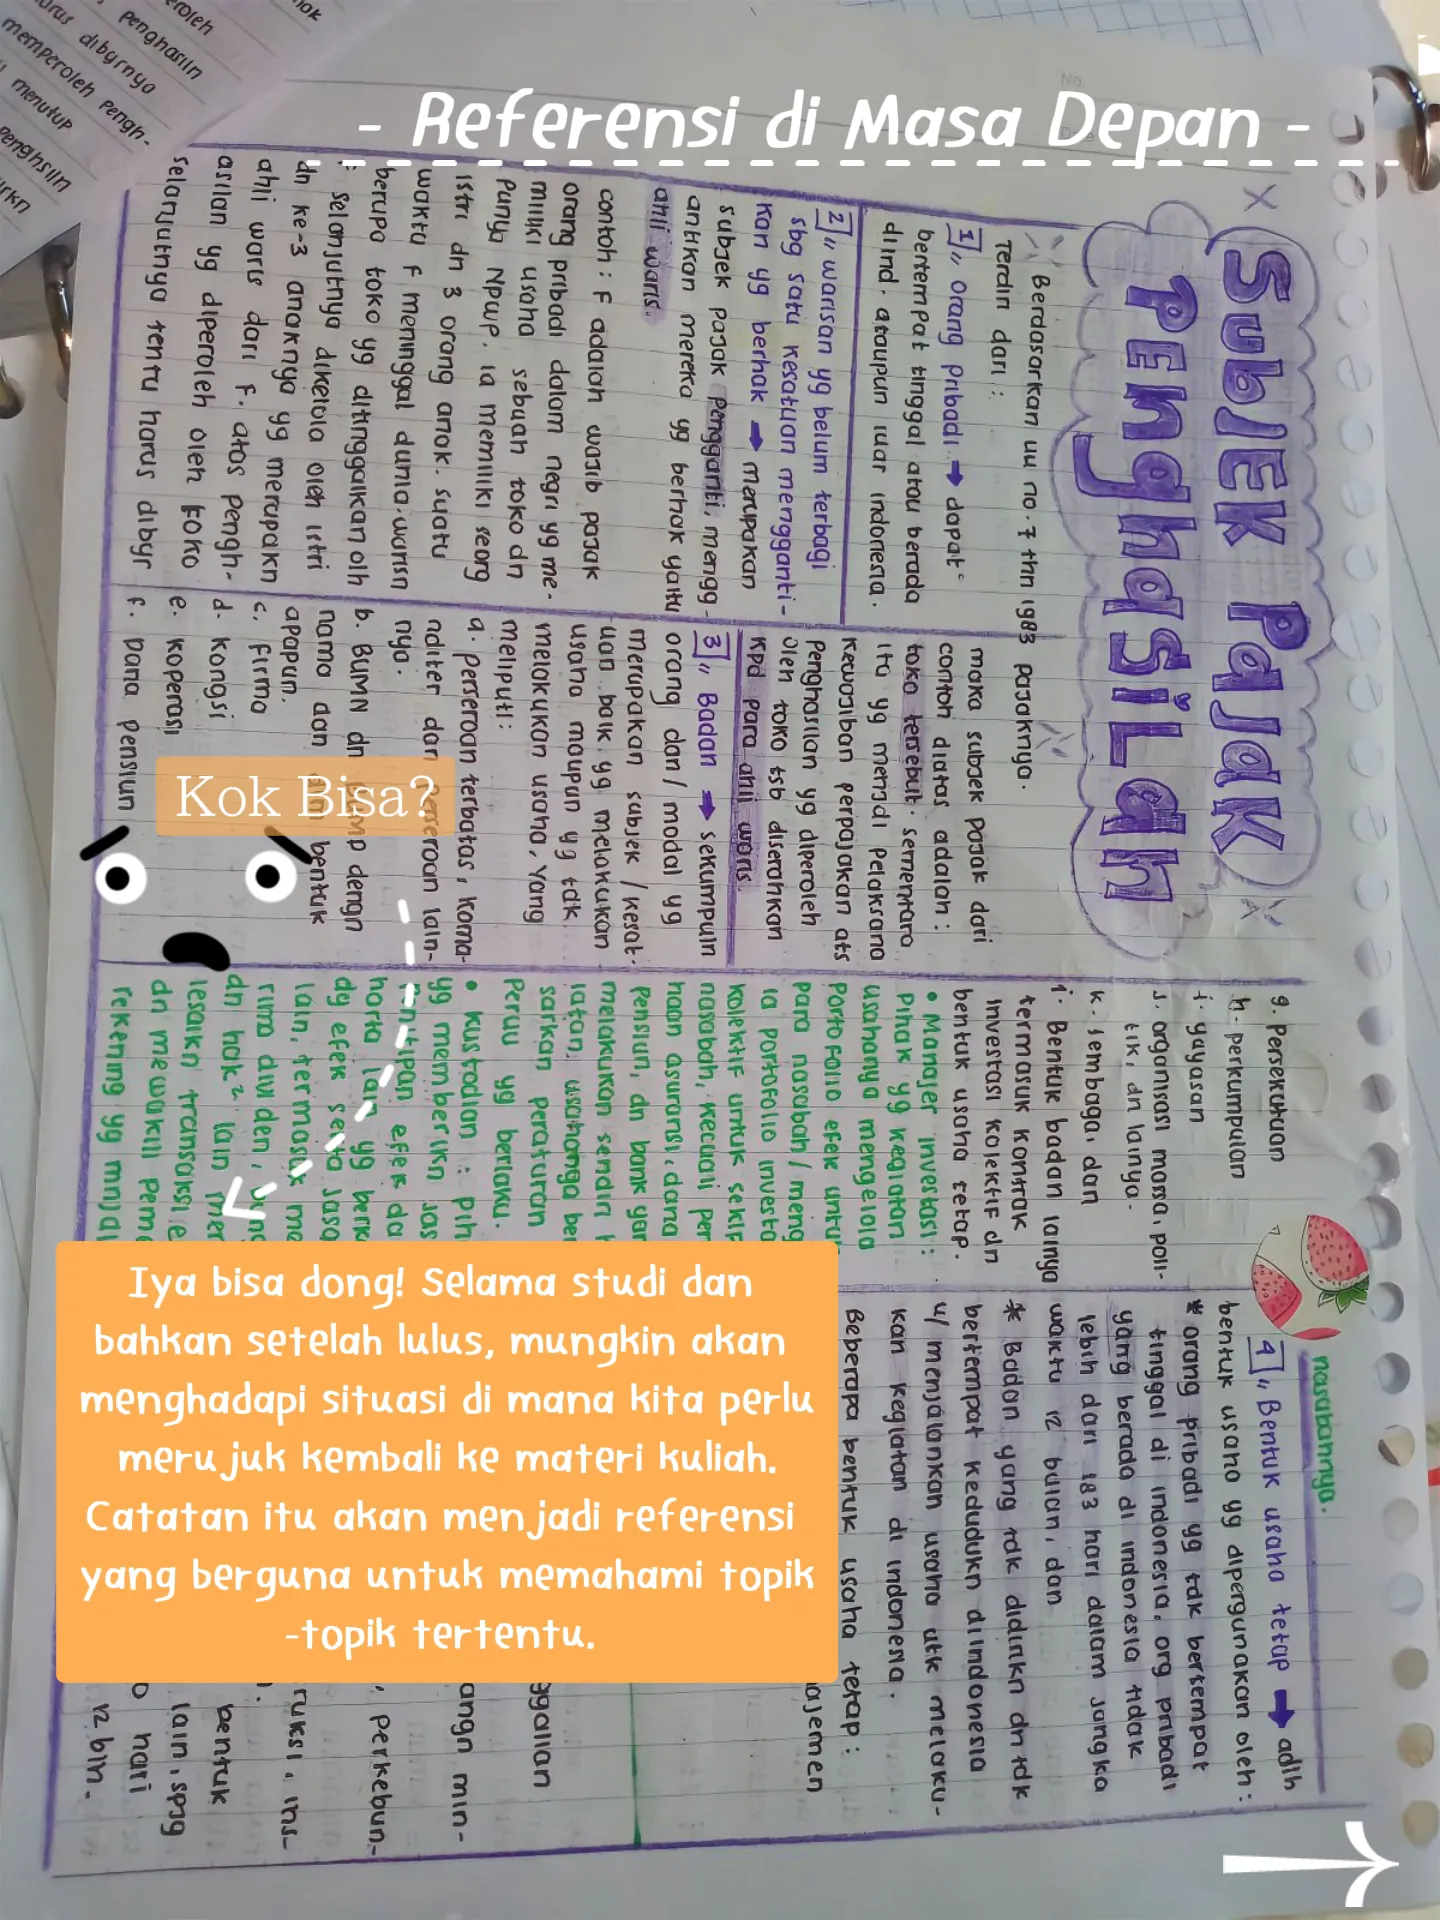 - Referensi di Masa Depan -
SubJEK PaJaK
PEnghaSiLan
Berdasarkan uu no. 7 thn 1983 pajaknya.
Terdiri dari :
1 " orang pribadi → dapat
bertempat tinggal atau berada
diind. ataupun luar indonesia.
2 " warisan yg belum terbagi
sbg satu kesatuan mengganti-
kan yg berhak → merupakan
subjek pajak pengganti, mengg-
antikan mereka yg berhak yaitu
ahli waris.
contoh : F adalah wajib pajak
orang pribadi dalam negri yg me-
miliki usaha sebuah toko dn
punya NPWP. ia memiliki seorg
istri dn 3 orang anak. suatu
waktu F meninggal dunia. warisn
berupa toko yg ditinggalkan olh
F selanjutnya dikelola oleh istri
dn ke-3 anaknya yg merupakn
ahli waris dari F. atas pengh-
asilan yg diperoleh oleh toko
selanjutnya tentu harus dibyr
maka subjek pajak dari
contoh diatas adalah :
toko tersebut. sementara
itu yg menjdi pelaksana
kewajiban perpajakan ats
penghasilan yg diperoleh
oleh toko tsb diserahkan
kpd para ahli waris.
3 " Badan → sekumpuln
orang dan/ modal yg
merupakan subjek /kesat-
uan baik yg melakukan
usaha maupun yg tdk
melakukan usaha, yang
meliputi:
a. perseroan terbatas, koma-
nditer dan perseroan lain-
nya.
b. BUMN dn dengn
nama dan bentuk
apapun.
c. firma
d. kongsi
e. koperasi
f. Dana pensiun
g. persekutuan
h. perkumpulan
i. yayasan
j. organisasi massa, poli-
tik, dn lainya.
k. lembaga, dan
Bentuk badan lainya
termasuk kontrak
investasi kolektif dn
bentuk usaha tetap.
• Manajer investasi :
pihak yg kegiatan
usahanya mengelola
portofolio efek
para nasabah/
ia portofolio
kolektif untuk
nasabah, kecuali
asuransi, dana
pensiun, dn bank
melakukan sendiri
usahanya
sarkan peraturan
peruu yg berlaku.
• Kustodian :
yg memberikn
efek
harta lain yg
dg efek serta jasa
lain, termasuk
rima dividen,
dn hak² lain
lesaikn transaksi
dn mewakili
rekening yg
nasabahnya.
4 " Bentuk usaha tetap → adlh
bentuk usaha yg dipergunakan oleh :
* orang pribadi yg tdk bertempat
tinggal di indonesia, org pribadi
yang berada di indonesia tidak
lebih dari 183 hari dalam jangka
waktu 12 bulan, dan
* Badan yang tdk didirikn dn tdk
bertempat kedudukn di indonesia
u/ menjalankan usaha utk melaku-
kan kegiatan di indonesia.
Beberapa bentuk usaha tetap :
Kok Bisa?
Iya bisa dong! Selama studi dan
bahkan setelah lulus, mungkin akan
menghadapi situasi di mana kita perlu
merujuk kembali ke materi kuliah.
Catatan itu akan menjadi referensi
yang berguna untuk memahami topik
-topik tertentu.